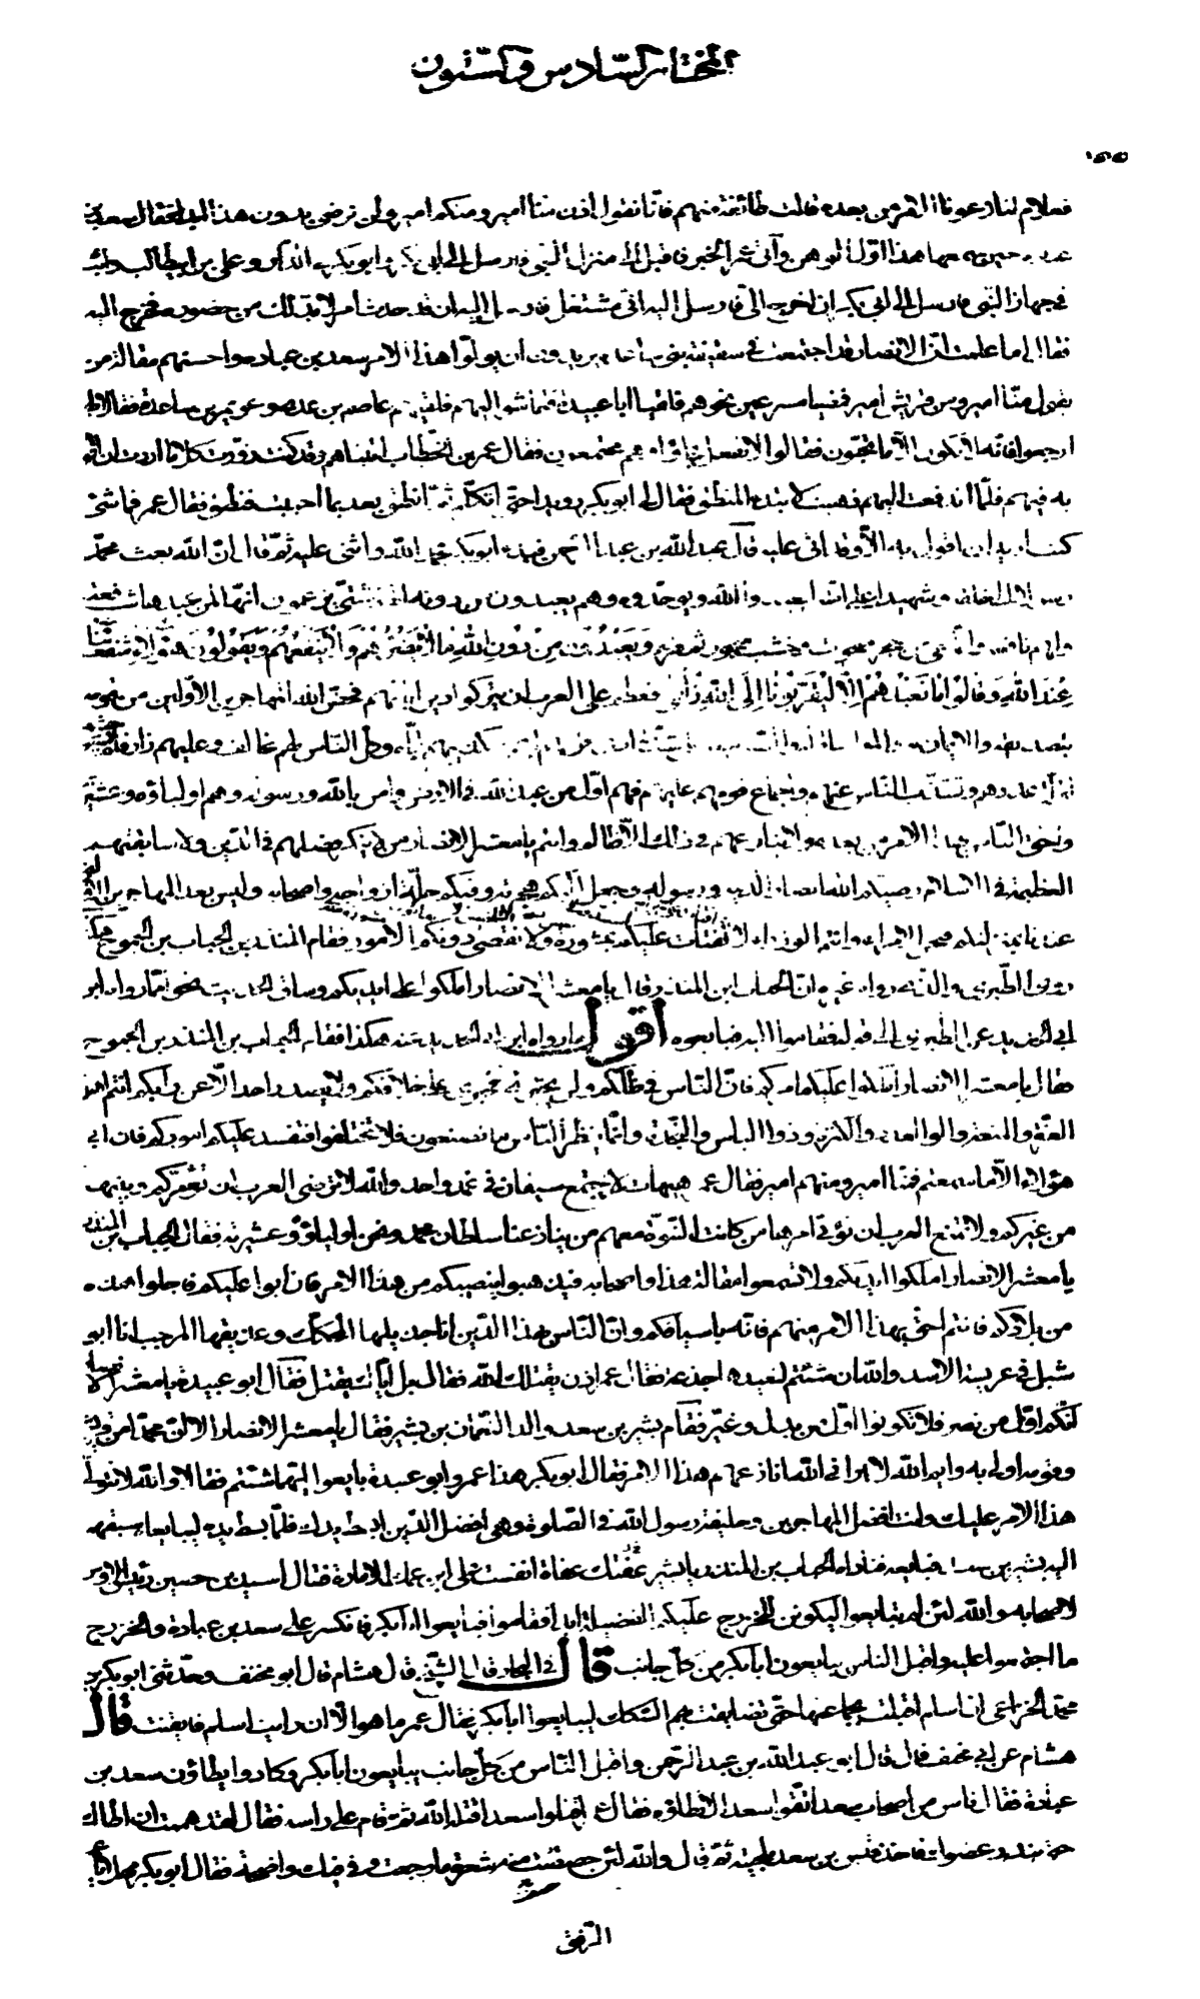 المختار السادس والستون
فعلام لنازعونا الامر من بعده فقالت طائفة منهم فانا نقول اذن منا امير ومنكم امير ولن نرضى بدون هذا ابدا فقال سعد بن
هذا اول الوهن وأتى عمر الخبر فاقبل الى منزل النبي فارسل الى ابى بكر وابو بكر فى الدار وعلى بن ابيطالب دائب
فى جهاز النبي فارسل الى ابى بكر ان اخرج الى فارسل اليه انى مشتغل فارسل اليه ان قد حدث امر لابد لك من حضوره فخرج اليه
فقال اما علمت ان الانصار قد اجتمعت فى سقيفة بنى ساعدة يريدون ان يولوا هذا الامر سعد بن عبادة واحسنهم مقالة من
يقول منا امير ومن قريش امير فمضيا مسرعين نحوهم فلقيا ابا عبيدة فتماشوا اليهم فلقيهم عاصم بن عدى وعويم بن ساعدة فقالا لهم
ارجعوا فانه لا يكون الا ما تحبون فقالوا لا نفعل فجاؤا وهم مجتمعون فقال عمر بن الخطاب اتيناهم وقد كنت زورت كلاما اردت ان اقوم
به فيهم فلما اندفعت اليهم ذهبت لابتدء المنطق فقال لى ابو بكر رويدا حتى اتكلم ثم انطق بعد بما احببت فنطق فقال عمر فما شئ
كنت اريد ان اقول به الا وقد اتى عليه قال عبد الله بن عبد الرحمن فبدء ابو بكر فحمد الله واثنى عليه ثم قال ان الله بعث محمدا
رسولا الى خلقه وشهيدا على امته ليعبدوا الله ويوحدوه وهم يعبدون من دونه الهة شتى يزعمون انها لمن عبدها شافعة
ولهم نافعة وانما هى من حجر منحوت وخشب منجور ثم قرء ويعبدون من دون الله ما لا يضرهم ولا ينفعهم ويقولون هؤلاء شفعاؤنا
عند الله وقالوا ما نعبدهم الا ليقربونا الى الله زلفى فعظم على العرب ان يتركوا دين ابائهم فخص الله المهاجرين الاولين من قومه
بتصديقه والايمان به والمواساة له والصبر معه على شدة اذى قومهم لهم وتكذيبهم اياه وكل الناس لهم مخالف وعليهم زار فلم يستوحشوا
لقلة عددهم وتشتت الناس عنهم واجتماع قومهم عليهم فهم اول من عبد الله فى الارض وامن بالله ورسوله وهم اولياؤه وعشيرته
واحق الناس بهذا الامر من بعده ولا ينازعهم فى ذلك الا ظالم وانتم يا معشر الانصار من لا ينكر فضلهم فى الدين ولا سابقتهم
العظيمة فى الاسلام رضيكم الله انصارا لدينه ورسوله وجعل اليكم هجرته وفيكم جلة ازواجه واصحابه وليس بعد المهاجرين الاولين
عندنا بمنزلتكم فنحن الامراء وانتم الوزراء لا تفتاتون عليكم بمشورة ولا نقضى دونكم الامور فقام المنذر بن الحباب بن الجموح هكذا
روى الطبرسى والذى رواه غيره ان الحباب ابن المنذر قال يا معشر الانصار املكوا على ايديكم وساق الحديث نحو ما رواه ابن
ابى الحديد عن الطبرى الى قوله فقاموا اليه فبايعوه اقول ما رواه ابن ابى الحديد عنه هكذا فقام الحباب بن المنذر بن الجموح
فقال يا معشر الانصار املكوا عليكم امركم فان الناس فى ظلكم ولن يجترى مجترى على خلافكم ولا يصدر احد الا عن رأيكم انتم اهل
العزة والمنعة واولوا العدد والكثرة وذووا البأس والنجدة وانما ينظر الناس ما تصنعون فلا تختلفوا فتفسد عليكم اموركم فان ابى
هؤلاء الا ما سمعتم فمنا امير ومنهم امير فقال عمر هيهات لا يجتمع سيفان فى غمد واحد والله لا ترضى العرب ان تؤمركم ونبيها
من غيركم ولا تمتنع العرب ان تولى امرها من كانت النبوة معهم من ينازعنا سلطان محمد ونحن اولياؤه وعشيرته فقال الحباب بن المنذر
يا معشر الانصار املكوا ايديكم ولا تسمعوا مقالة هذا واصحابه فيذهبوا بنصيبكم من هذا الامر فان ابوا عليكم فاجلوهم
من بلادكم فانتم احق بهذا الامر منهم فانه باسيافكم دان الناس بهذا الدين انا جذيلها المحكك وعذيقها المرجب انا ابو
شبل فى عريسة الاسد والله ان شئتم لنعيدها جذعة فقال عمر اذن يقتلك الله فقال بل اياك يقتل فقال ابو عبيدة يا معشر الانصار
انكم اول من نصر فلا تكونوا اول من بدل وغير فقام بشير بن سعد والد النعمان بن بشير فقال يا معشر الانصار الا ان محمدا من قريش
وقومه اولى به وايم الله لا يرانى الله انازعهم هذا الامر فقال ابو بكر هذا عمر وابو عبيدة بايعوا ايهما شئتم فقالا والله لا نتولى
هذا الامر عليك وانت افضل المهاجرين وخليفة رسول الله فى الصلوة وهى افضل الدين ابسط يدك فلما بسط يده ليبايعاه سبقهما
اليه بشير بن سعد فبايعه فناداه الحباب بن المنذر يا بشير عققت عقاق انفست على ابن عمك الامارة فقال اسيد بن حضير رئيس الاوس
لاصحابه والله لئن لم تبايعوا ليكونن للخزرج عليكم الفضيلة ابدا فقاموا فبايعوا ابا بكر فانكسر على سعد بن عبادة والخزرج
ما اجتمعوا عليه واقبل الناس يبايعون ابا بكر من كل جانب قال فى البحار قال الشيخ قال هشام قال ابو مخنف وحدثنى ابو بكر بن
محمد الخزاعى ان اسلم اقبلت بجماعتها حتى تضايقت بهم السكك ليبايعوا ابا بكر فقال عمر ما هو الا ان رايت اسلم فايقنت قال
هشام عن ابى مخنف قال قال عبد الله بن عبد الرحمن واقبل الناس من كل جانب يبايعون ابا بكر وكادوا يطاؤن سعد بن
عبادة فقال ناس من اصحاب سعد اتقوا سعدا لا تطاؤه فقال عمر اقتلوا سعدا قتله الله ثم قام على راسه فقال لقد هممت ان اطاك
حتى تندر عضوك فاخذ قيس بن سعد بلحيته ثم قال والله لئن حصصت منه شعرة ما رجعت وفى فيك واضحة فقال ابو بكر مهلا يا عمر
الرفق